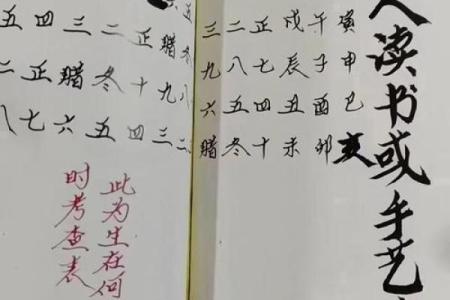 人读书或手艺
寅申巳亥
午子酉卯
戌辰丑未
正七四十
二八五冬
三九六腊
冬八二
腊九三
正十四
二冬五
三腊六
四正七
五二八
此为生在何
时考查表